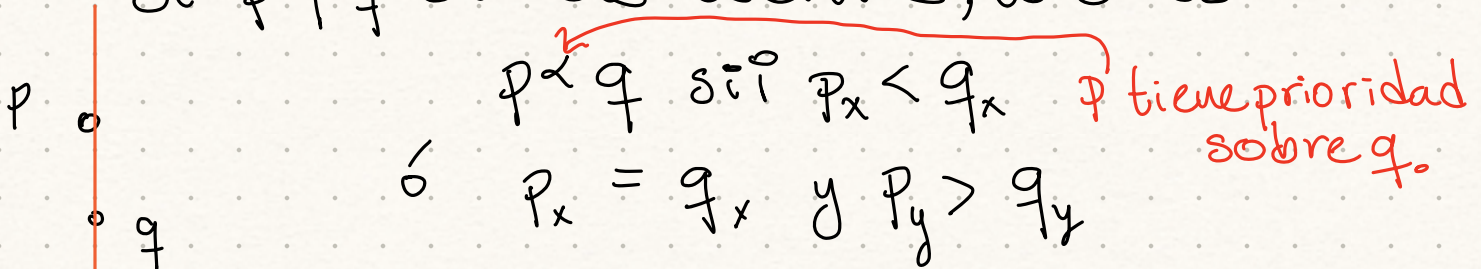 p p ≺ q sii pₓ < qₓ p tiene prioridad
sobre q.
ó pₓ = qₓ y p_y > q_y
q